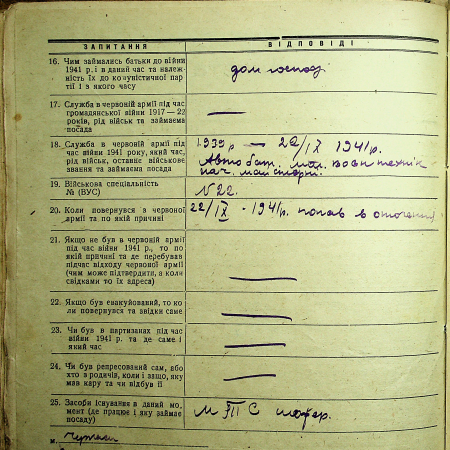 ЗАПИТАННЯ ВІДПОВІДІ
16. Чим займались батьки до війни
1941 р. і в даний час та належ-
ність їх до комуністичної пар-
тії і з якого часу
дом господ.
17. Служба в червоній армії під час
громадянської війни 1917—22
років, рід військ та займаєма
посада
—
18. Служба в червоній армії під
час війни 1941 року, який час,
рід військ, останнє військове
звання та займаєма посада
1939 р — 22/IX 1941 р.
Автобат. мол. воен технік
нач. майстерні.
19. Військова спеціальність
№ (ВУС)
N 22.
20. Коли повернувся з червоної
армії та по якій причині
22/IX - 1941 р. попав в оточення
21. Якщо не був в червоній армії
під час війни 1941 р., то по
якій причині та де перебував
підчас відходу червоної армії
(чим може підтвердити, а коли
свідками то їх адреса)
—
22. Якщо був евакуйований, то ко-
ли повернувся та звідки саме
—
23. Чи був в партизанах під час
війни 1941 р. та де саме і
який час
—
24. Чи був репресований сам, або
хто з родичів, коли і защо, яку
мав кару та чи відбув її
—
25. Засоби існування в даний мо-
мент (де працює і яку займає
посаду)
шофер.
м.